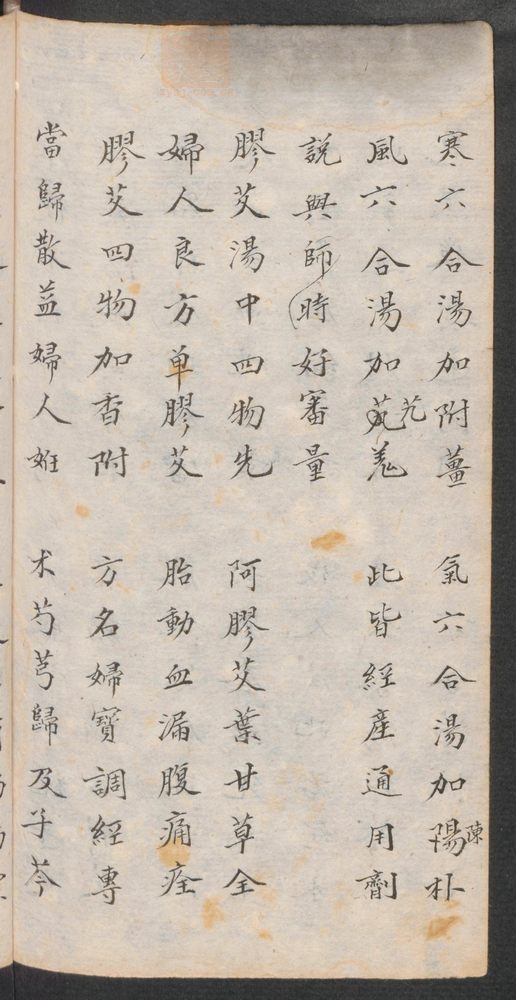 寒六合湯加附薑 氣六合湯加陽陳朴
風六合湯加芄艽羗 此皆經產通用劑
説與師時好審量
膠艾湯中四物先 阿膠艾葉甘草全
婦人良方单膠艾 胎動血漏腹痛痊
膠艾四物加香附 方名婦寳調經專
當歸散益婦人姙 术芍芎歸及子芩